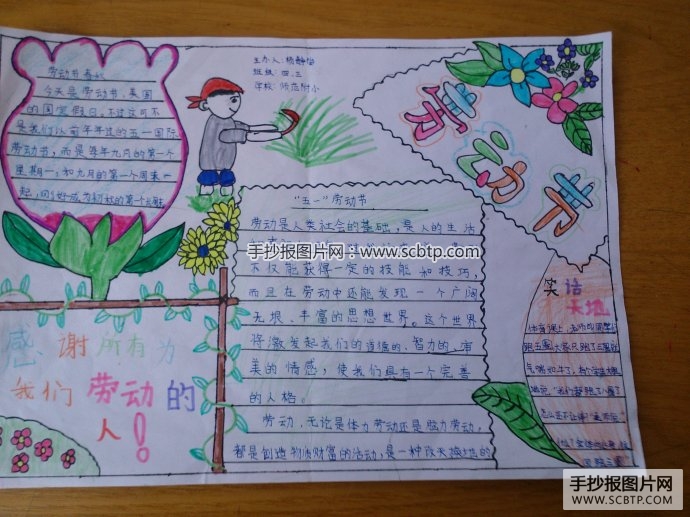 劳动节春秋
今天是劳动节,美国
的国定假日。不过这可不
是我们以前年年过的五一国际
劳动节,而是每年九月的第一个
星期一,和九月的第一个周末一
起,
主办人:杨静怡
班级:四.三
学校:师范附小
劳动节
"五一"劳动节
劳动是人类社会的基础,是人的生活
手抄报图片网:www.scbtp.com
不仅能获得一定的技能和技巧,
而且在劳动中还能发现一个广阔
无垠、丰富的思想世界。这个世界
将激发起我们的道德的、智力的、审
美的情感,使我们具有一个完善
的人格。
劳动,无论是体力劳动还是脑力劳动,
都是创造物质财富的活动,是一种改天换地的
感谢所有为
我们劳动的
人!
笑话
天地
体育课上,老师叫同学们
跑五圈,大家只跑了三圈就
手抄报图片网
WWW.SCBTP.COM